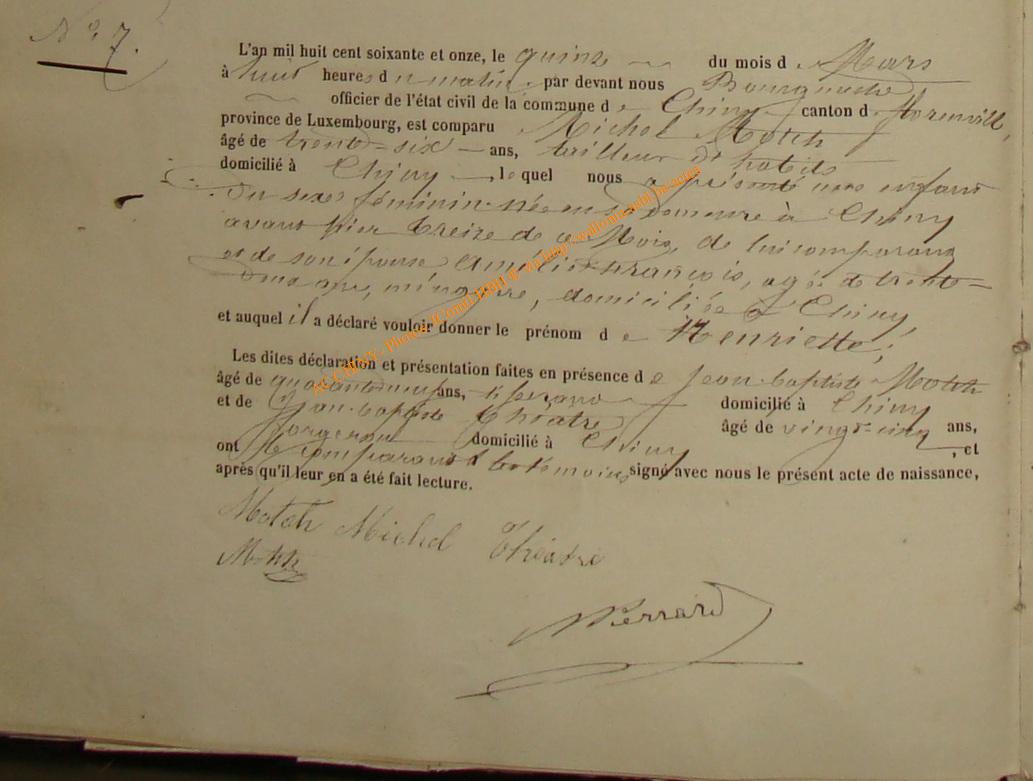 N° 7.
L'an mil huit cent soixante et onze, le quinze du mois de Mars
à huit heures du matin, par devant nous Bourgmestre
officier de l'état civil de la commune de Chiny canton de Florenville,
province de Luxembourg, est comparu Michel Motch
âgé de trente-six ans, tailleur d'habits
domicilié à Chiny, lequel nous a présenté une enfant
du sexe féminin née en sa demeure à Chiny
avant hier treize de ce Mois, de lui comparant
et de son épouse Amélie François, agée de trente-
ans, ménagère, domiciliée à Chiny,
et auquel il a déclaré vouloir donner le prénom de Henriette;
Les dites déclaration et présentation faites en présence de Jean-baptiste Motch
âgé de quarante neuf ans, tisserand domicilié à Chiny
et de Jean-baptiste Théâtre âgé de vingt-cinq ans,
forgeron domicilié à Chiny, et
ont le comparant et les témoins signé avec nous le présent acte de naissance,
après qu'il leur en a été fait lecture.
Motch Michel Théâtre
Motch
Pierrard